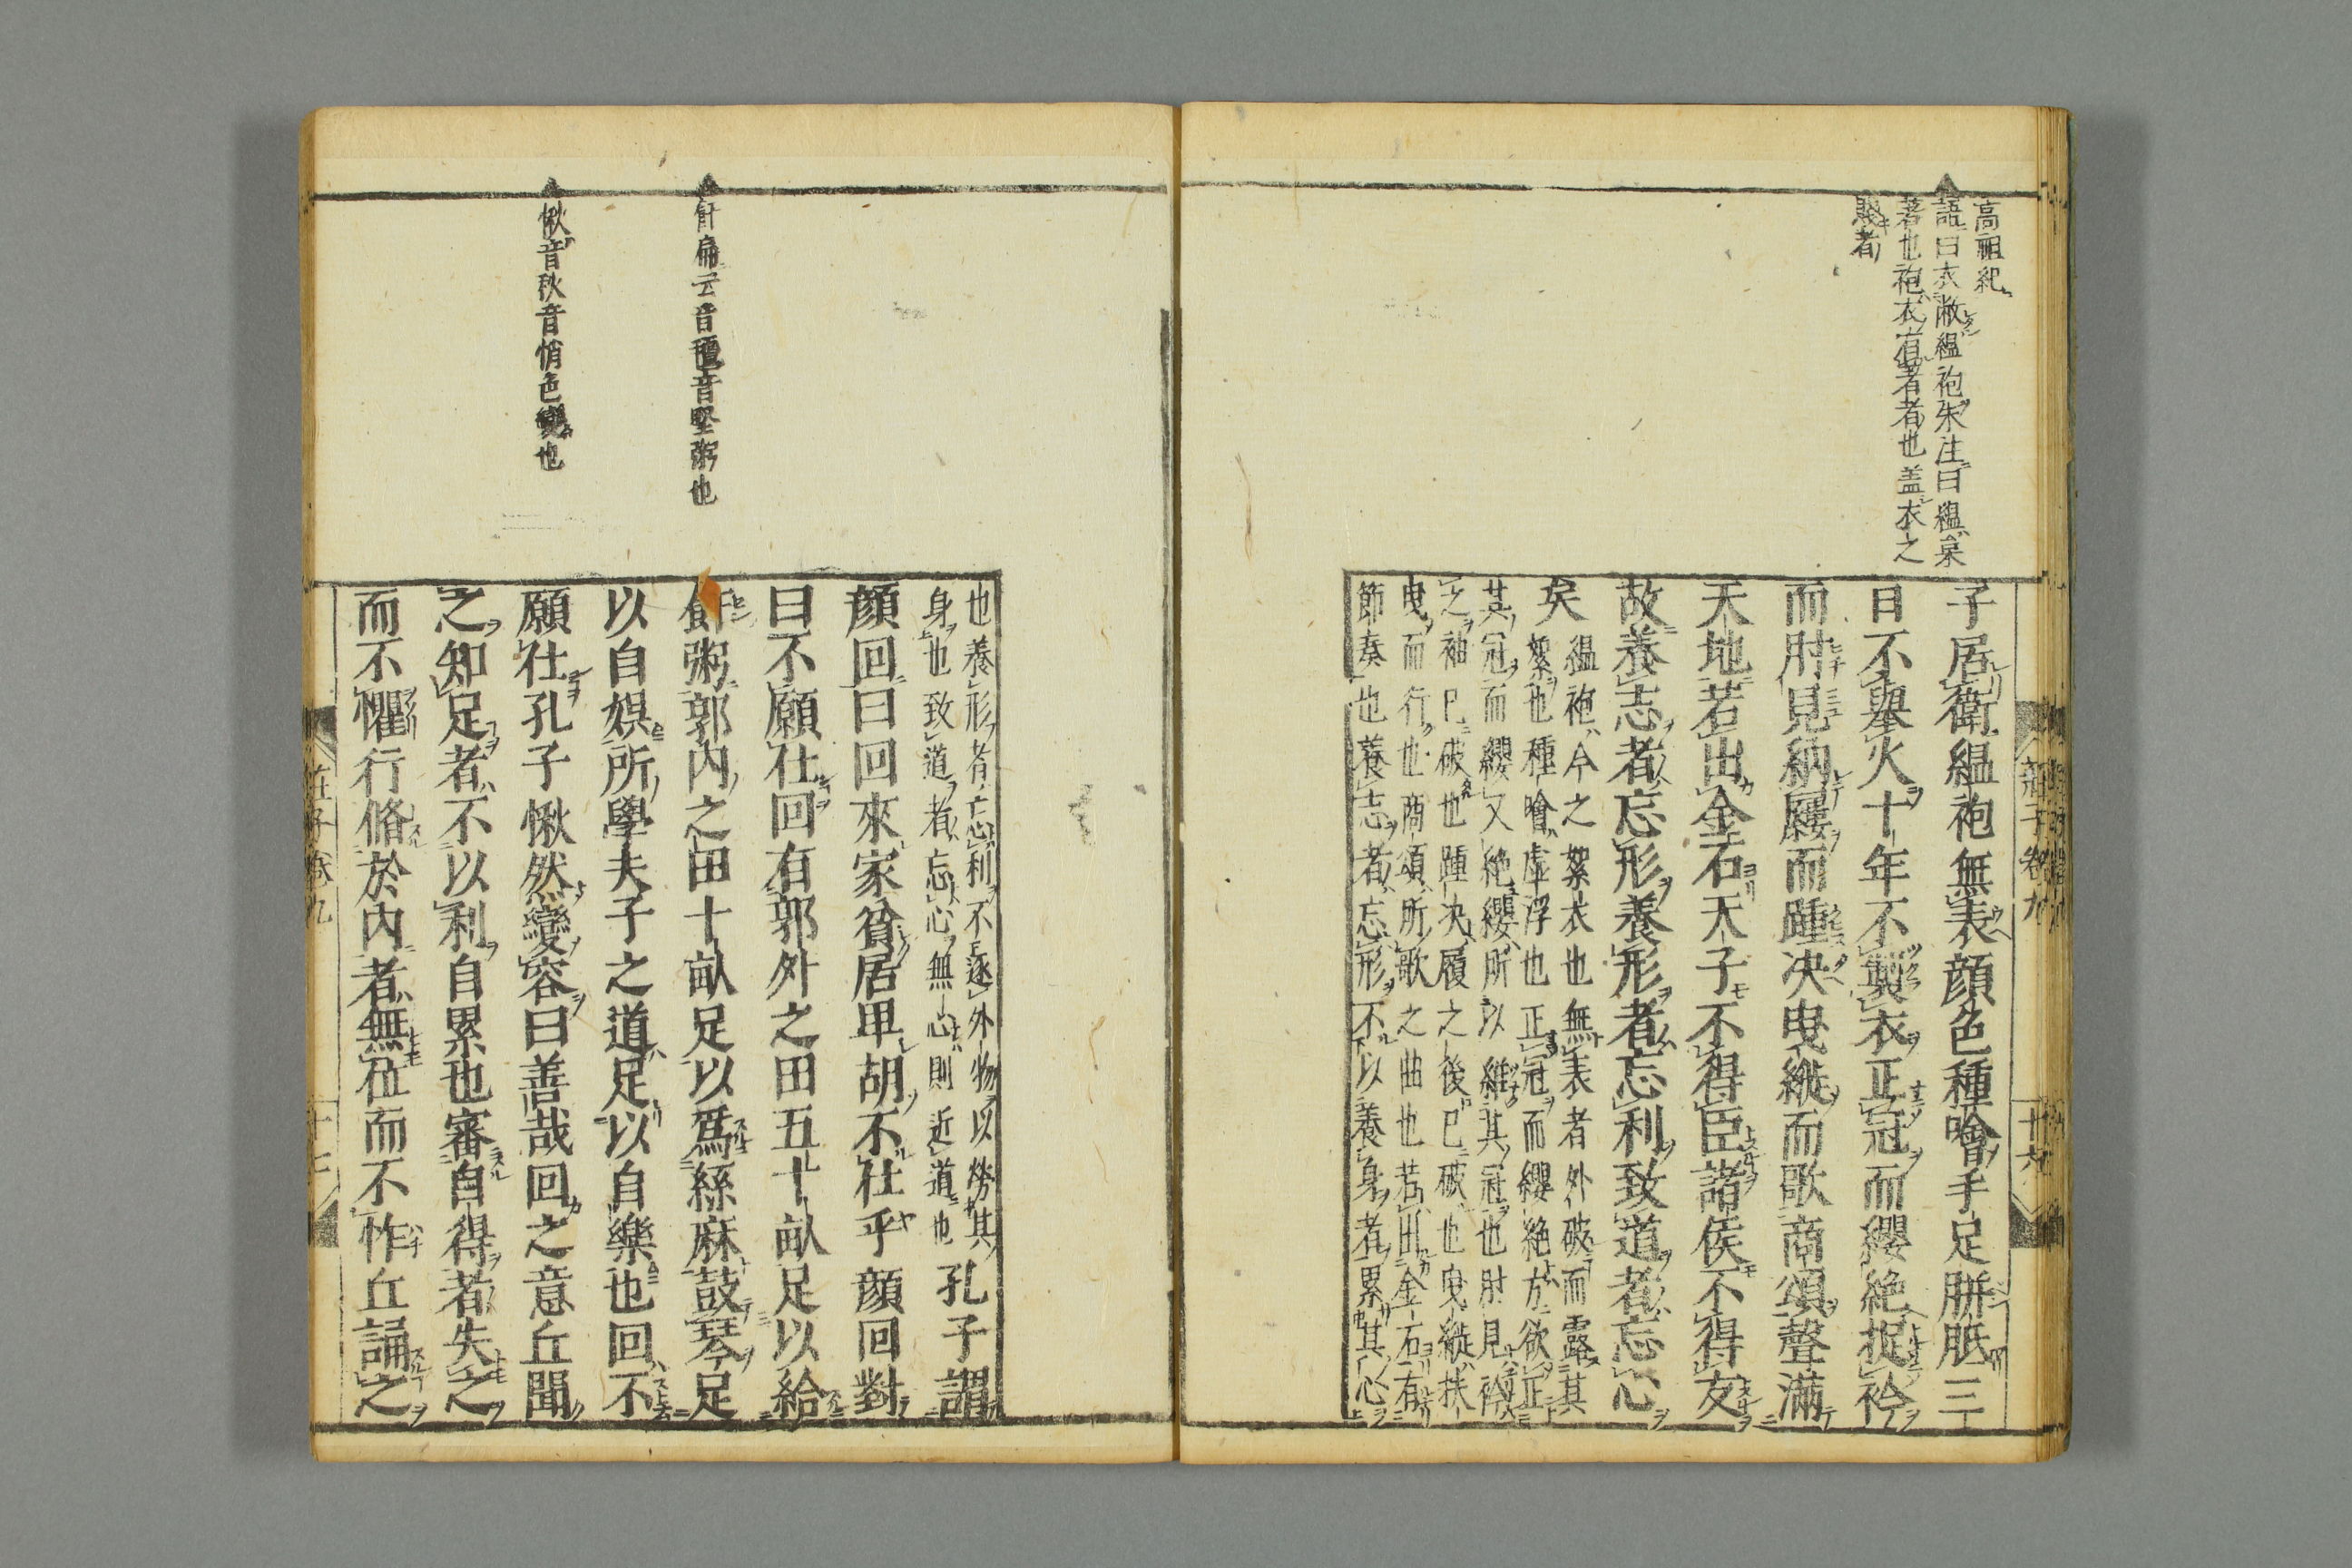 高祖紀
語曰衣敝縕袍朱注曰縕枲
著也袍衣有著者也盖衣之
賤者
子居衛縕袍無表顔色種噲手足胼胝三
日不擧火十年不製衣正冠而纓絶捉衿
而肘見納屨而踵决曳縰而歌商頌聲滿
天地若出金石天子不得臣諸侯不得友
故養志者忘形養形者忘利致道者忘心
矣
縕袍今之絮衣也無表者外破而露其
絮也種噲虛浮也正冠而纓絶方欲正
其冠而纓又絶纓所以維其冠也肘見衿
之袖巳破也踵决履之後巳破也曳縰扶
曳而行也商頌所歌之曲也若出金石有
節奏也養志者忘形不以養身者累其心
也養形者忘利不逐外物以勞其
身也致道者忘心無心則近道也
孔子謂
顔回曰回來家貧居卑胡不仕乎顔回對
曰不願仕回有郭外之田五十畝足以給
粥郭内之田十畝足以爲絲麻鼓琴足
以自娯所學夫子之道足以自樂也回不
願仕孔子愀然變容曰善哉回之意丘聞
之知足者不以利自累也審自得者失之
而不懼行脩於内者無位而不怍丘誦之
飦扁云音䭈音堅粥也
愀音秋音悄色變也
莊子卷九
廿六
莊子卷九